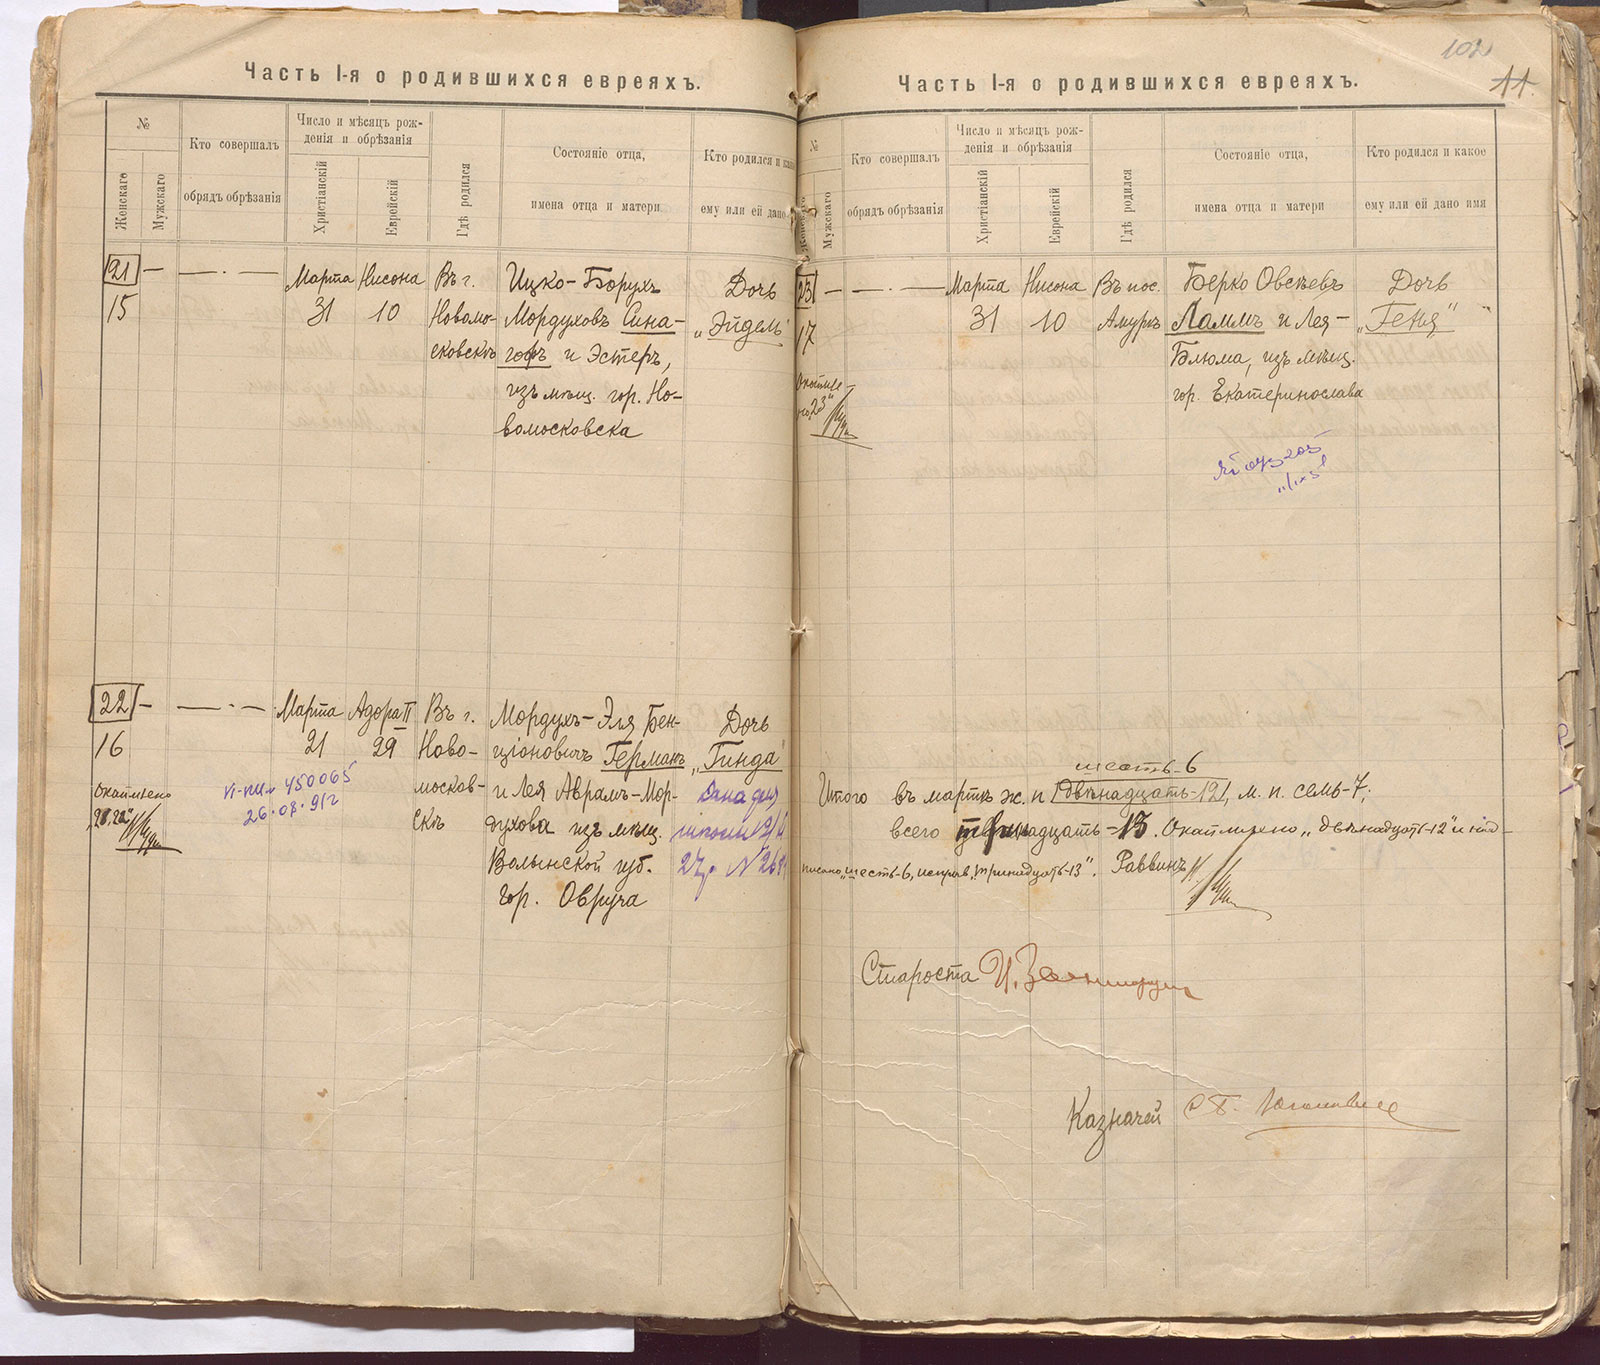 Часть I-я о родившихся евреяхъ.
№
Женскаго
Мужскаго
Кто совершалъ
обрядъ обрѣзанія
Число и мѣсяцъ рож-
денія и обрѣзанія
Христіанскій
Еврейскій
Гдѣ родился
Состояніе отца,
имена отца и матери
Кто родился и как
ему или ей дано
21 — — · — Марта Нисона Въ г. Ицко-Борухъ Дочь
15 31 10 Новомо- Мордуховъ Сина- „Эйдель"
сковскѣ гофъ и Эстеръ,
изъ мѣщ. гор. Но-
вомосковска
22 — — · — Марта Адора II Въ г. Мордухъ-Эля Бен- Дочь
16 21 29 Ново- ціоновичъ Германъ „Гинда"
Окаймлено VI-ПИ 450065 москов- и Лея Аврамъ-Мор-
„21, 22" 26·08·91г скѣ духова изъ мѣщ.
Волынской губ. 27р №
гор. Овруча
102
11.
Часть I-я о родившихся евреяхъ.
№
Женскаго
Мужскаго
Кто совершалъ
обрядъ обрѣзанія
Число и мѣсяцъ рож-
денія и обрѣзанія
Христіанскій
Еврейскій
Гдѣ родился
Состояніе отца,
имена отца и матери
Кто родился и какое
ему или ей дано имя
23 — — · — Марта Нисона Въ пос. Берко Овсѣевъ Дочь
17 31 10 Амуръ Ламмъ и Лея- „Геня"
Блюма, изъ мѣщ.
Окаймле- гор. Екатеринослава
но „23"
шесть-6
Итого въ мартѣ ж. п двѣнадцать-12, м. п. семь-7,
всего тринадцать-13. Окаймлено „двѣнадцать-12" и над-
писано „шесть-6, исправ. „тринадцать-13". Раввинъ
Староста И.
Казначей